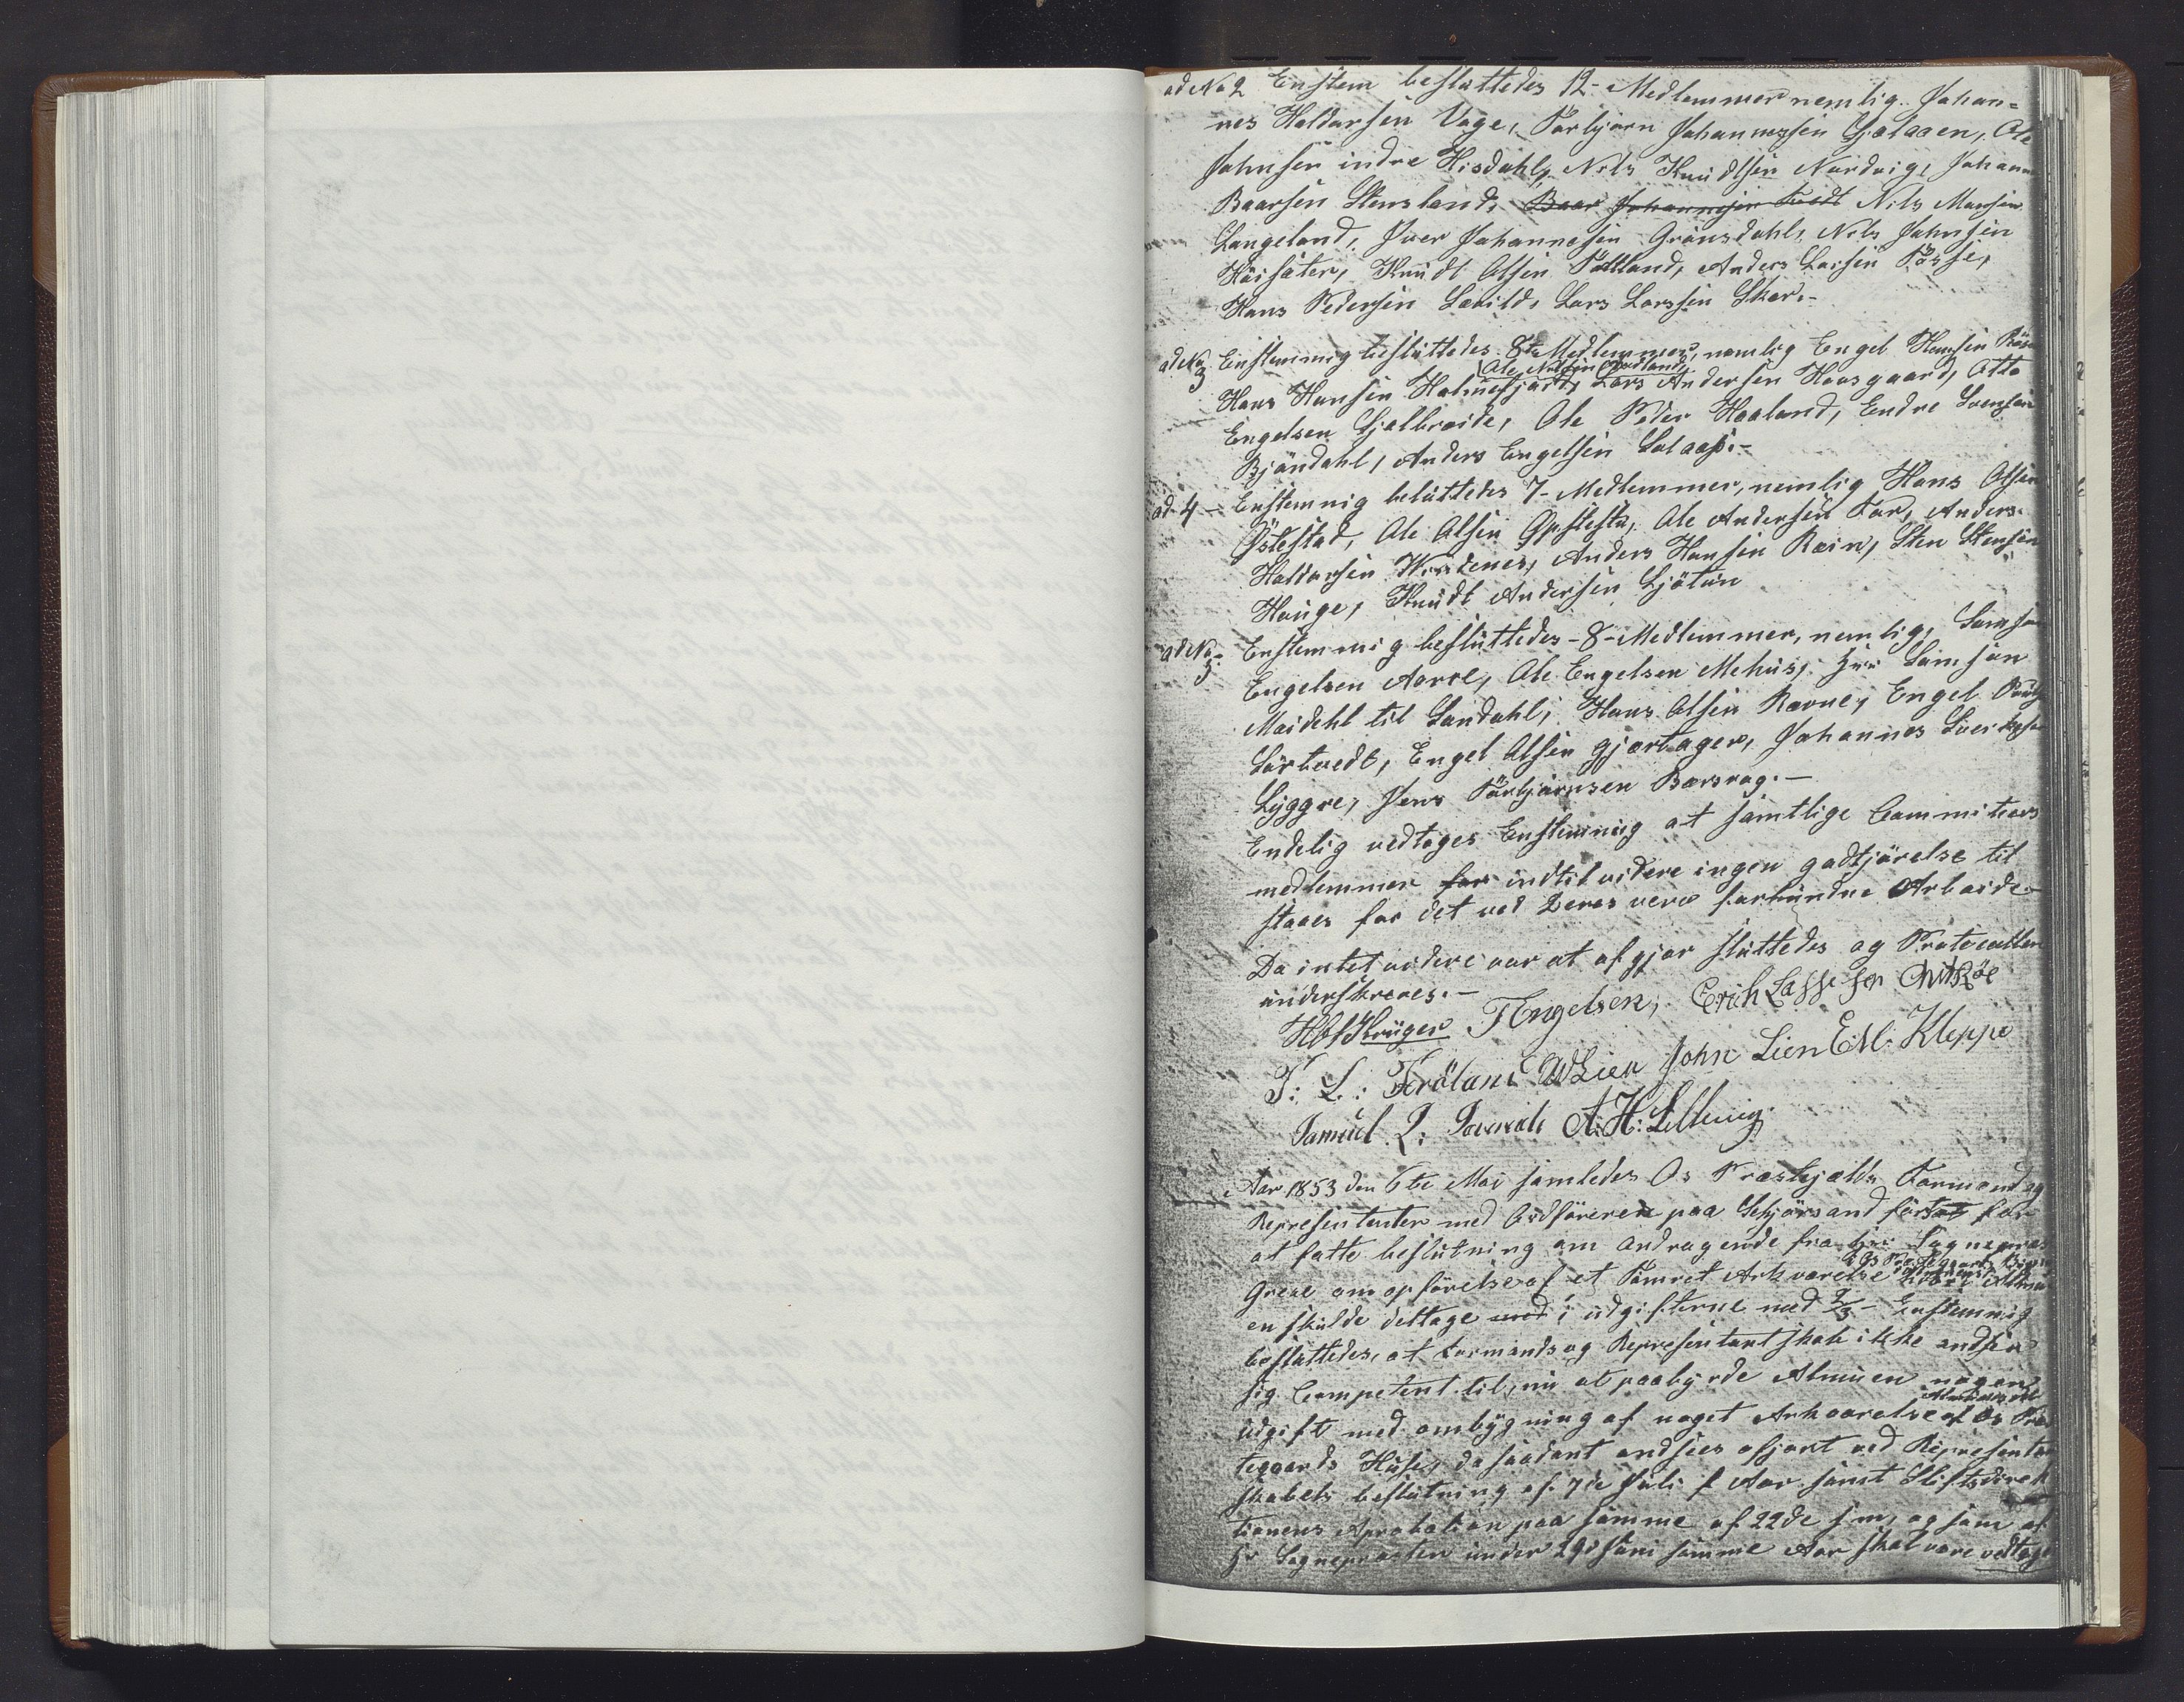 ad No 2 Enstem besluttedes 12- Medlemmer nemlig Johan=
nes Haldorsen Vage, Torbjørn Johannessen Gjelaaen, Ole
Johnsen indre Hisdahl, Nils Knudtsen Nordvig, Johan
Baarsen Stensland, Baar Johannesen Tvedt Nils Monsen
Langeland, Iver Johannesen Grønsdahl, Nils Johnsen
Høisæter, Knudt Olsen Tøttland, Anders Larsen Røsse,
Hans Pedersen Lekild, Lars Larssen Skar.-
ad No 3 Enstemmig besluttedes 8te Medlemmer, nemlig Engel Hansen
Ole Nilsen
Hans Hansen Holmefjord, Lars Andersen Hovsgaard, Otto
Engelsen Gjelbreide, Ole Peder Haaland, Endre Svensen
Bjøndahl, Anders Engelsen Solaas.-
ad 4 - Enstemmig beluttedes 7- Medlemmer, nemlig Hans Olsen
Østestad, Ole Olsen Opstestu, Ole Andersen Tor, Anders
Haldorsen Wredenes, Anders Hansen Røin, Sten Stensen
Hauge, Knudt Andersen Ljøtun
ad No 5 Enstemmig besluttedes - 8 - Medlemmer, nemlig, Samson
Engelsen Aarre, Ole Engelsen Mehus, Hrr Samson
Maidehl til Sandahl, Hans Olsen Ravne, Engel
Sørtvedt, Engel Olsen Gjertager, Johannes
Lyggre, Jens Torbjørnsen Borsrog.-
Endelig vedtoges Enstemmig at samtlige Committees
medlemmer for indtil videre ingen godtjørelse til
staaes for det ved Deres verv forbundne Arbeide-
Da intet videre var at afgjør sluttedes og Protocollen
underskreves.-
Krüger T Engelsen, Erich Lassesen
T: L: Frøland WLien John Lien E M. Kleppe
Samuel L: A. H: Lilletvig
Aar 1853 den 6te Mai samledes Os Præstegjælds Formænd og
Represententer med Ordføreren paa Skjørsand førsat for
at fatte beslutning om andragende fra Hrr Sognepræst
Greve om opførelse af et Tømret Arkværelse
en skulde deltage med i udgifterne med 2/3- Enstemmig
besluttedes, at Formands og Representantskab ikke andseer
sig Competent til, nu at paabyrde Almuen nogen
udgift med ombygning af noget Arkværelse af Os Præs
tegaards Huse, da saadant andsees afjort ved Representan
skabets beslutning af 7de Juli f Aar samt Stiftsdirek
tionens Aprobation paa samme af 22de s m, og som af
Hr Sognepræsten under 29d Juni samme Aar skal være vedtaget